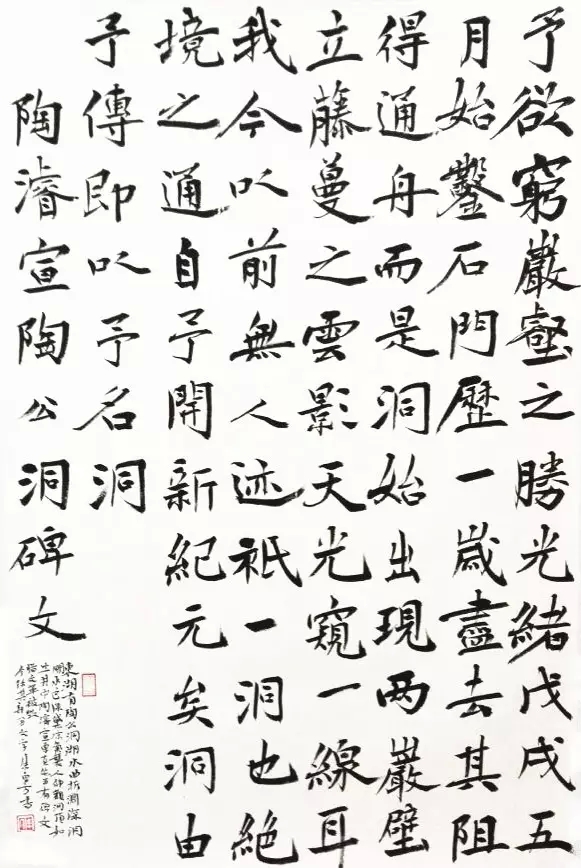 予欲窮巖壑之勝光緒戊戌五
月始鑿石門歷一歲盡去其阻
得通舟而是洞始出現两巖壁
立藤蔓之雲影天光窺一線耳
我今以前無人迹祇一洞也絕
境之通自予開新紀元矣洞由
予傳即以予名洞
陶濬宣陶公洞碑文
東湖有陶公洞湖水曲折淵深洞